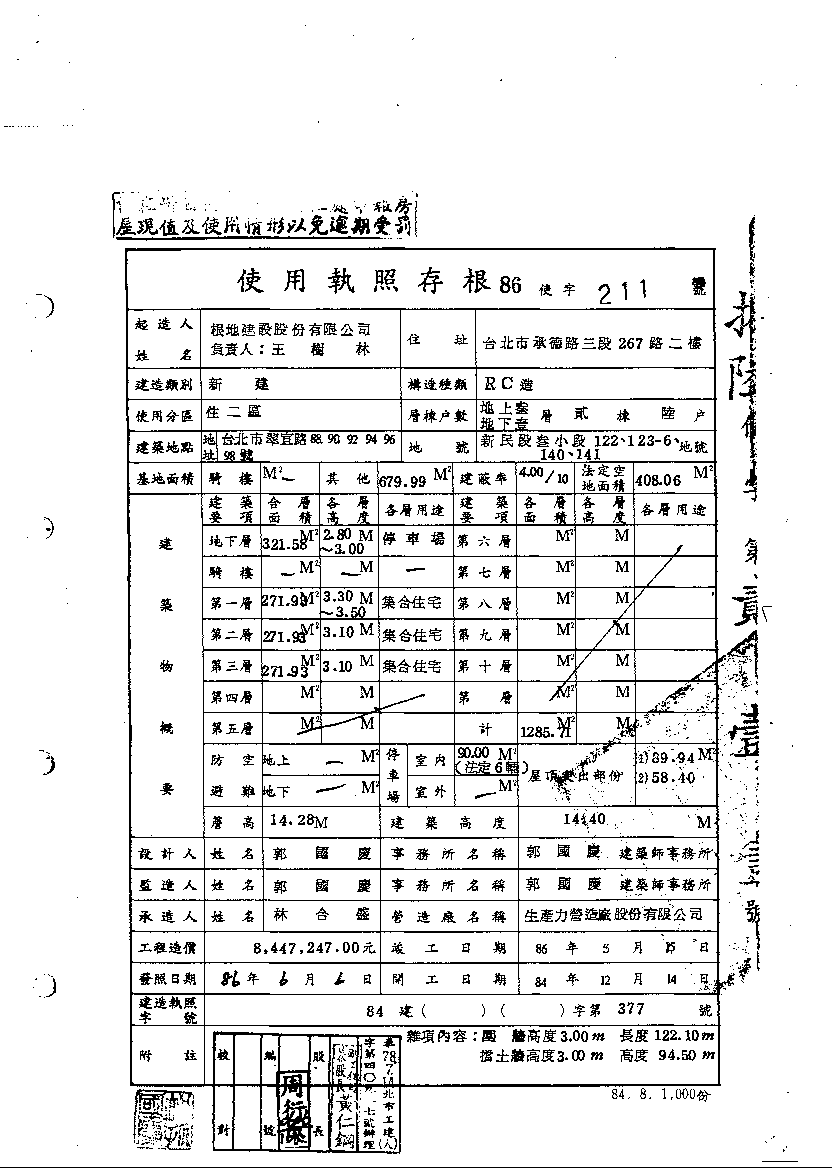 屋現值及使用情形以免逾期受罰
使用執照存根86 使字 211 號
起造人姓名 根地建設股份有限公司 負責人：王樹林 住址 台北市承德路三段267路二樓
建造類別 新建 構造種類 RC造
使用分區 住二區 層棟戶數 地上叁地下壹層 貳棟 陸戶
建築地點 地址 台北市翠宜路88 90 92 94 96 98號 地號 新民段叁小段122、123-6、140、141地號
基地面積 騎樓 M² — 其他 679.99 M² 建蔽率 4.00/10 法定空地面積 408.06 M²
建築物概要 建築要項 各層面積 各層高度 各層用途 建築要項 各層面積 各層高度 各層用途
地下層 321.58 M² 2.80 M ～3.00 停車場 第六層 M² M
騎樓 — M² — M — 第七層 M² M
第一層 271.93 M² 3.30 M ～3.50 集合住宅 第八層 M² M
第二層 271.93 M² 3.10 M 集合住宅 第九層 M² M
第三層 271.93 M² 3.10 M 集合住宅 第十層 M² M
第四層 M² M 第層 M² M
第五層 M² M 計 1285.71 M² M
防空避難 地上 — M² 停車場 室內 90.00 M² (法定6輛) 屋頂突出部份 (1)89.94 M²
地下 — M² 室外 — M² (2)58.40
簷高 14.28M 建築高度 14.40 M
設計人 姓名 郭國慶 事務所名稱 郭國慶 建築師事務所
監造人 姓名 郭國慶 事務所名稱 郭國慶 建築師事務所
承造人 姓名 林合盛 營造廠名稱 生產力營造廠股份有限公司
工程造價 8,447,247.00元 竣工日期 86年5月15日
發照日期 86年6月6日 開工日期 84年12月14日
建造執照字號 84建( )( )字第377號
附註 雜項內容：圍牆高度3.00m 長度122.10m
擋土牆高度3.00m 高度 94.50m
校對 編號 股長
周
股長黃仁鋼
84.8.1,000份